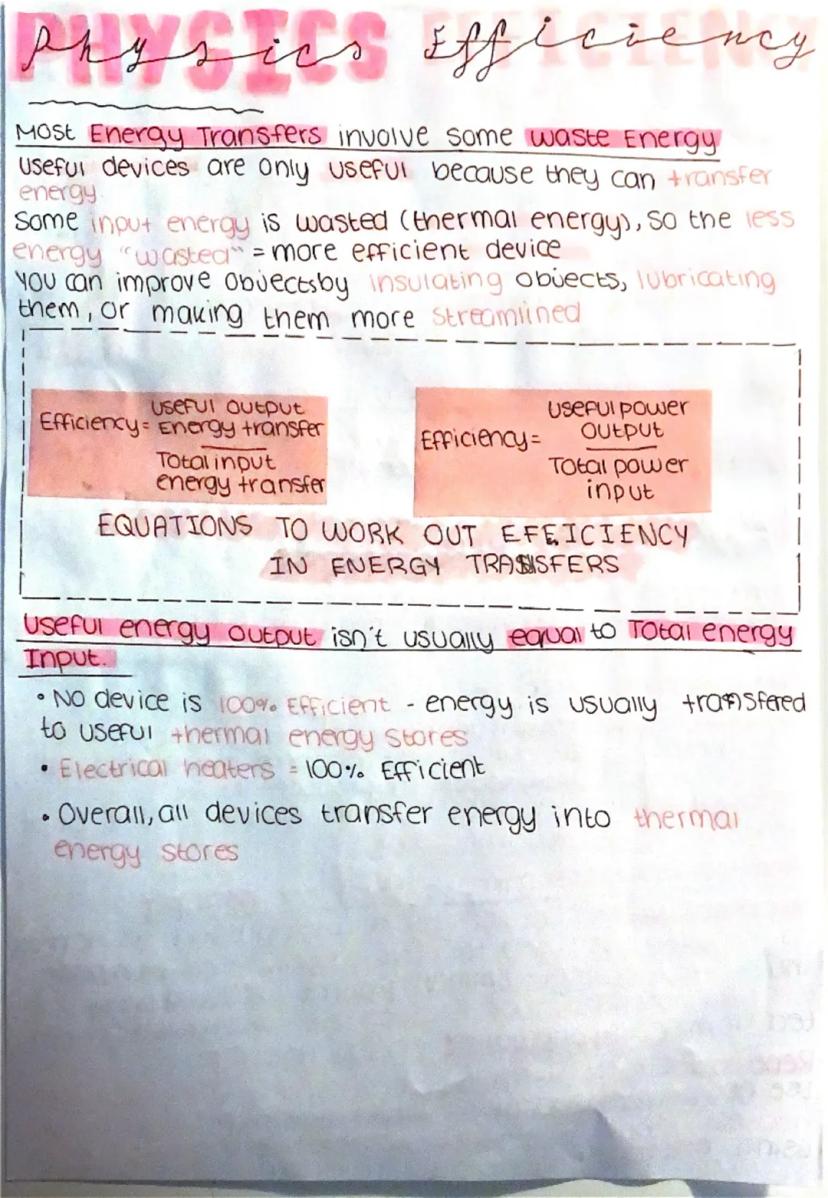 Physics Efficiency
PHYSICS EFFICIENCY
Most Energy Transfers involve some waste Energy
Useful devices are only useful because they can transfer
energy.
Some input energy is wasted (thermal energy), so the less
energy "wasted" = more efficient device
You can improve objectsby insulating objects, lubricating
them, or making them more streamlined
Efficiency = Useful output
Energy transfer
Total input
energy transfer
Efficiency = Useful power
output
Total power
input
EQUATIONS TO WORK OUT EFFICIENCY
IN ENERGY TRANSFERS
Useful energy output isn't usually equal to Total energy
Input.
• No device is 100% Efficient - energy is usually transfered
to useful thermal energy stores
• Electrical heaters = 100% Efficient
• Overall, all devices transfer energy into thermal
energy stores